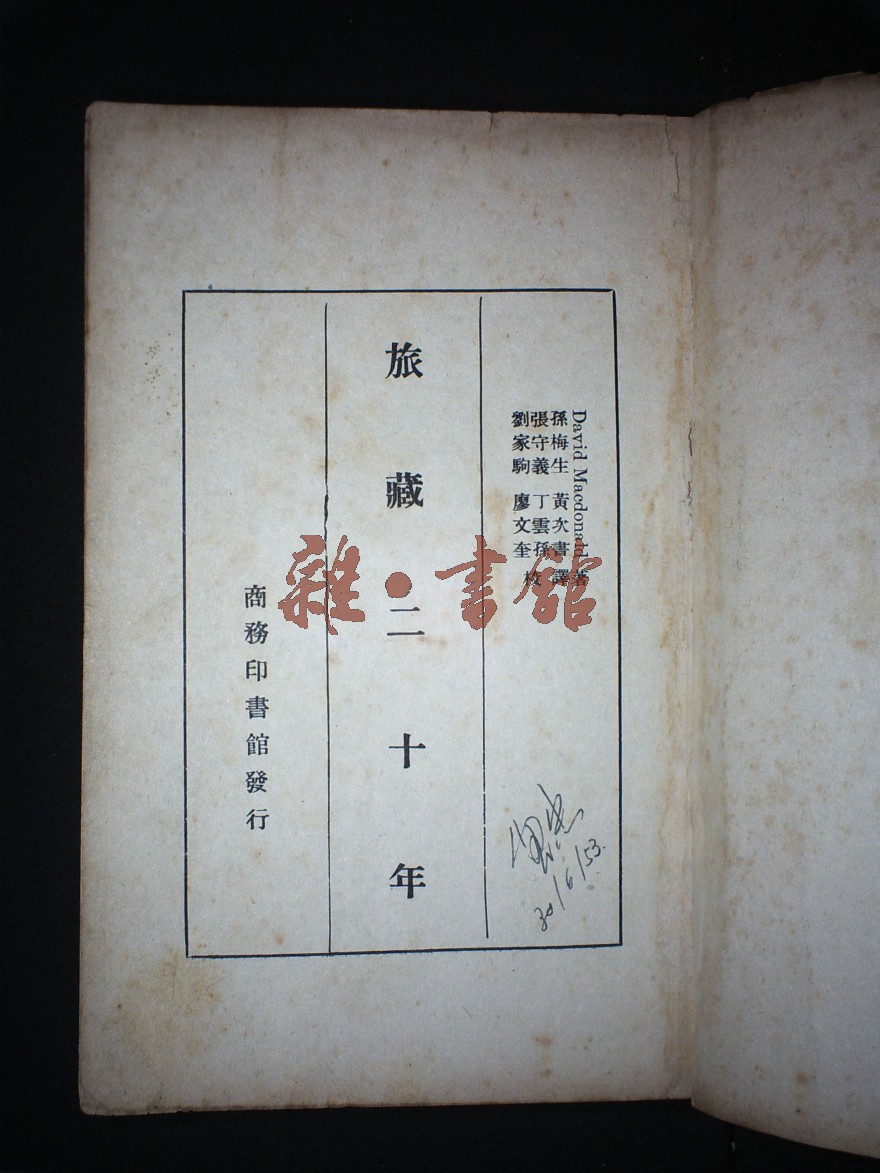 David Macdonald 著
孫梅生 黃次書 譯
張守義 丁雲孫
劉家駒 廖文奎 校
旅藏二十年
商務印書館發行
雜·書館
30/6/53.